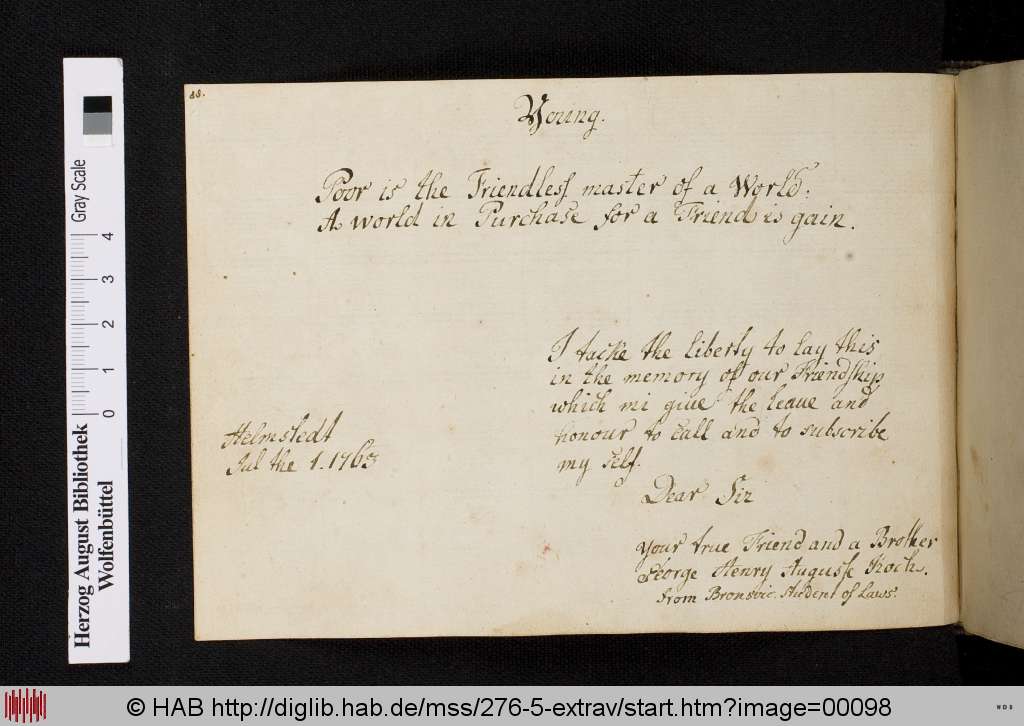 88.
Young.
Poor is the Friendless master of a World:
A world in Purchase for a Friend is gain.
I tacke the liberty to lay this
in the memory of our Friendship
which mi give the leave and
honour to call and to subscribe
my self.
Helmstedt
Jul the 1. 1763
Dear Sir
your true Friend and a Brother
George Henry Auguste Koch.
from Bronsvic. Student of Laws.
Herzog August Bibliothek
Wolfenbüttel
0 1 2 3 4
Gray Scale
© HAB http://diglib.hab.de/mss/276-5-extrav/start.htm?image=00098
WDB